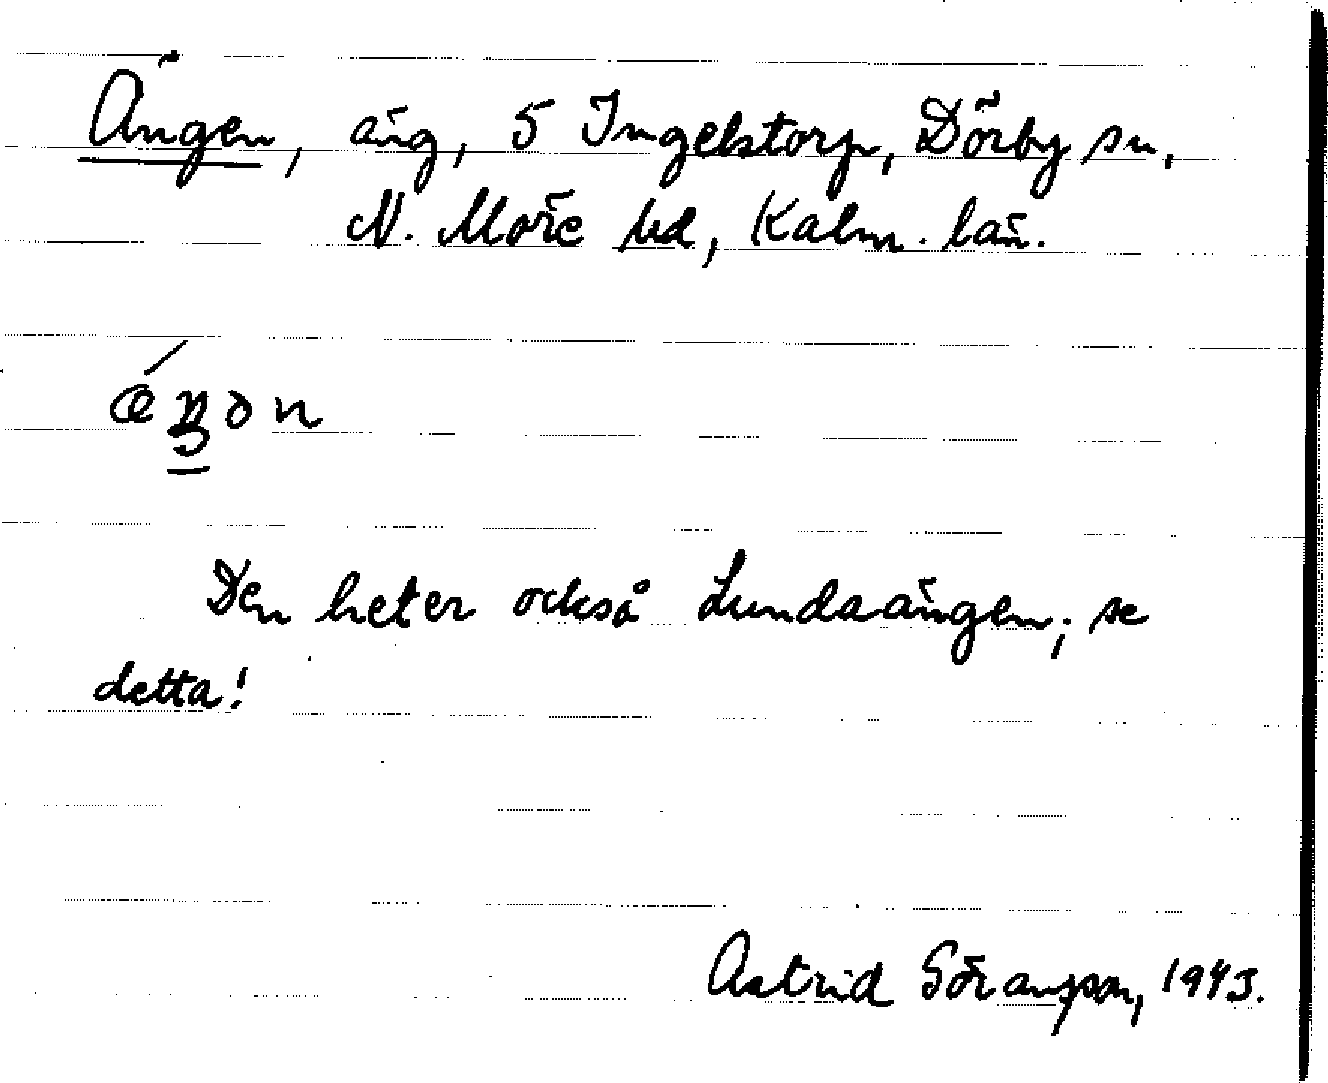 Ängen, äng, 5 Ingelstorp, Dörby sn,
N. Möre hd, Kalm. län.
Den heter också Lundaängen; se
detta!
Astrid Göransson, 1943.